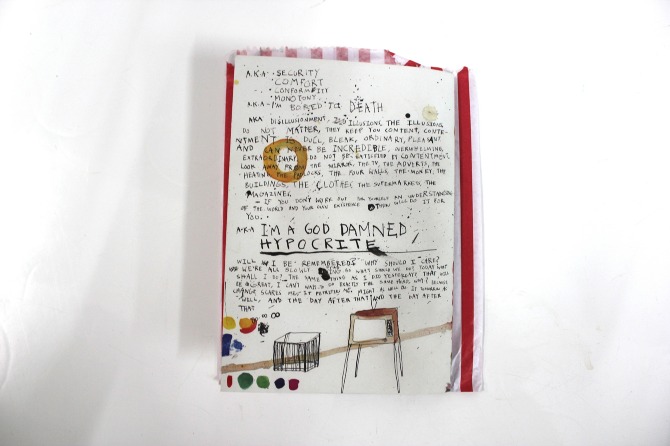 A.K.A. · SECURITY
· COMFORT
· CONFORMITY
· MONOTONY.
A.K.A · I'M BORED TO DEATH
AKA DISILLUSIONMENT, ILLUSIONS THE ILLUSIONS
DO NOT MATTER, THEY KEEP YOU CONTENT, CONTE-
NTMENT IS DULL, BLEAK, ORDINARY, PLEASANT
AND CAN NEVER BE INCREDIBLE, OVERWHELMING,
EXTRAORDINARY, DO NOT BE SATISFIED BY CONTENTMENT,
LOOK AWAY FROM THE MIRROR, THE TV, THE ADVERTS, THE
HEADPHONES, THE FOUR WALLS, THE MONEY, THE
BUILDINGS, THE CLOTHES THE SUPERMARKETS, THE
MAGAZINES.
- IF YOU DON'T WORK OUT FOR YOURSELF AN UNDERSTANDING
OF THE WORLD AND YOUR OWN EXISTENCE OTHERS WILL DO IT FOR
YOU.
A.K.A I'M A GOD DAMNED
HYPOCRITE
WILL I BE REMEMBERED? WHY SHOULD I CARE?
WE'RE ALL SLOWLY DYING SO WHAT SHOULD WE DO TODAY WHAT
SHALL I DO? THE SAME THING AS I DID YESTERDAY? THAT WILL
BE GREAT, I CAN'T WAIT TO DO EXACTLY THE SAME THING, WHY? BECAUSE
CHANGE SCARES ME, IT PETRIFIES ME. MIGHT AS WELL DO IT TOMORROW AS
WELL, AND THE DAY AFTER THAT AND THE DAY AFTER
THAT